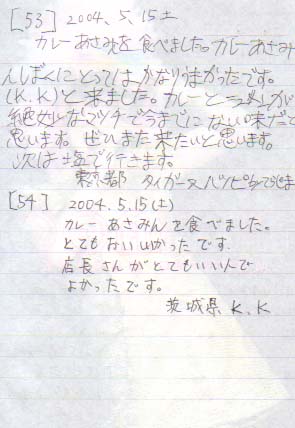 [53] 2004、5、15土
カレーあさみを食べました。カレーあさみ
んぼくにとってはかなりうまかったです。
(K.K)と来ました。カレーと
絶妙なマッチで今までにない味だと
思います。ぜひまた来たいと思います。
次は塩で行きます。
東京都 タイガース
[54] 2004.5.15(土)
カレーあさみんを食べました。
とてもおいしかったです
店長さんがとてもいい人で
よかったです。
茨城県 K、K